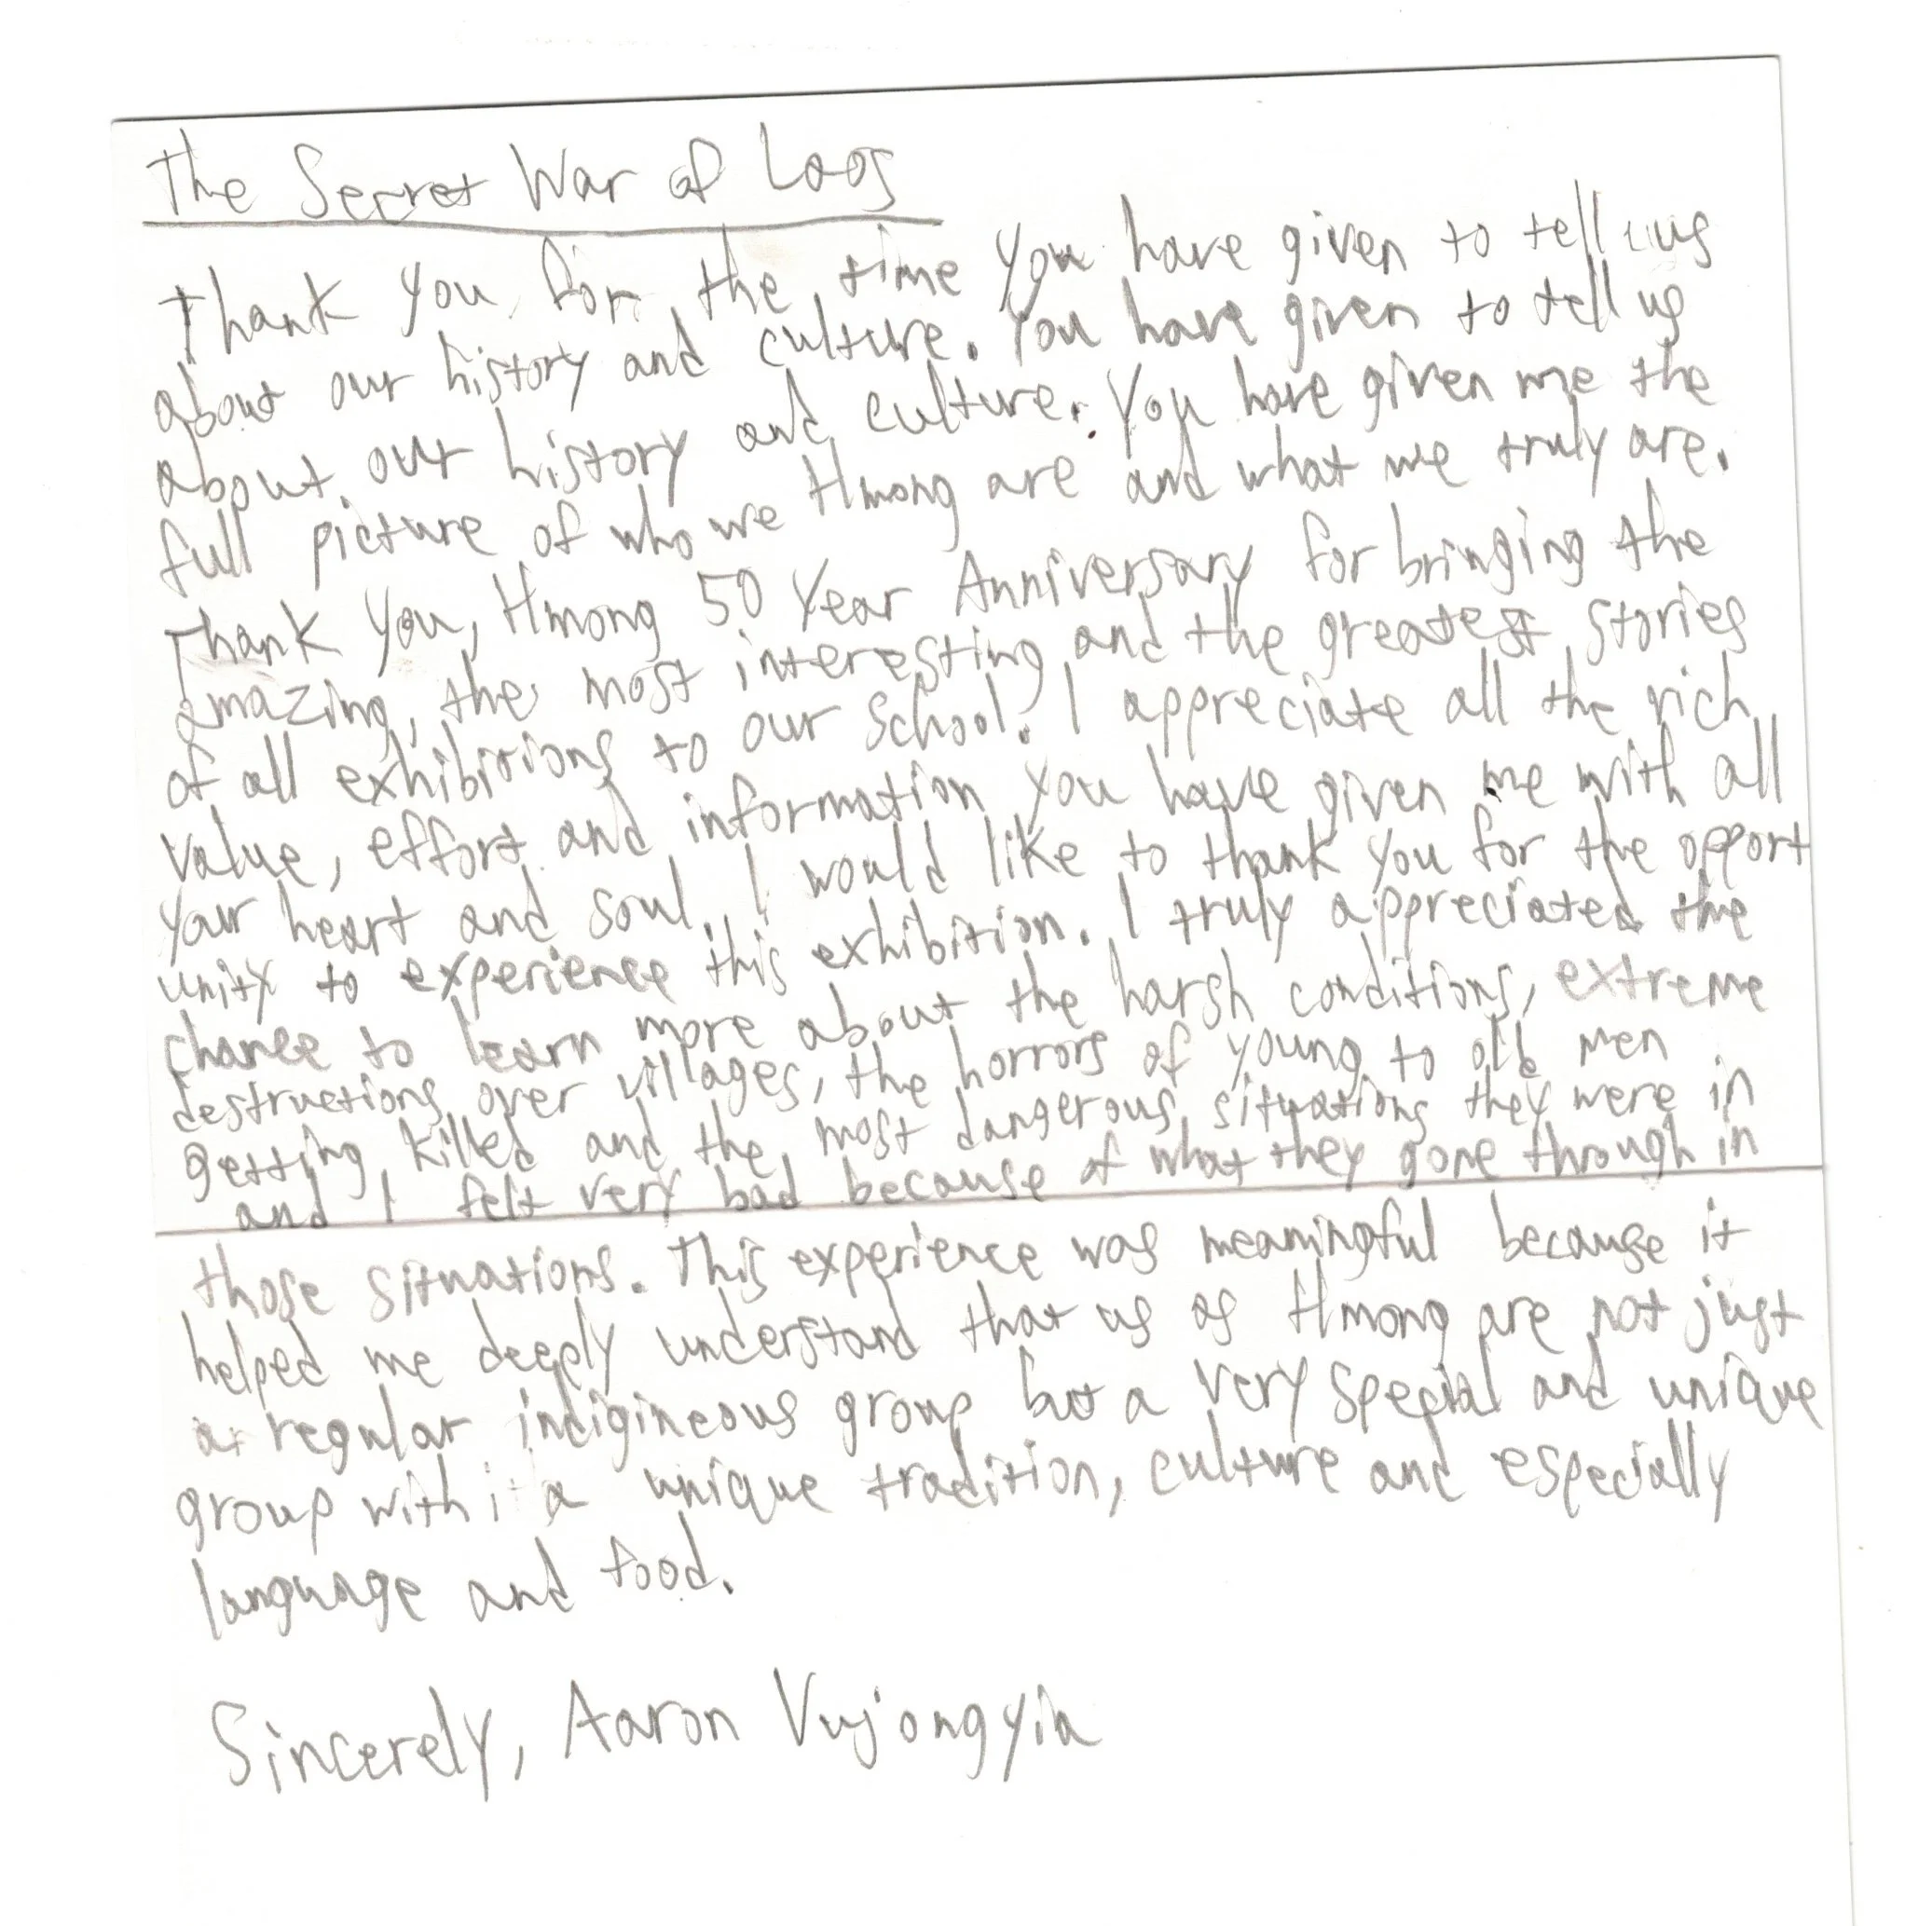 The Secret War of Laos
Thank you for the time you have given to tell us
about our history and culture. You have given to tell us
about our history and culture. You have given me the
full picture of who we Hmong are and what we truly are.
Thank you, Hmong 50 Year Anniversary for bringing the
amazing, the most interesting and the greatest stories
of all exhibitions to our school! I appreciate all the rich
value, effort and information you have given me with all
your heart and soul. I would like to thank you for the opport
unity to experience this exhibition. I truly appreciated the
chance to learn more about the harsh conditions, extreme
destructions over villages, the horrors of young to old men
getting killed and the most dangerous situations they were in
and I felt very bad because of what they gone through in
those situations. This experience was meaningful because it
helped me deeply understand that us as Hmong are not just
a regular indigineous group but a very special and unique
group with a unique tradition, culture and especially
language and food.
Sincerely, Aaron Vujongyia